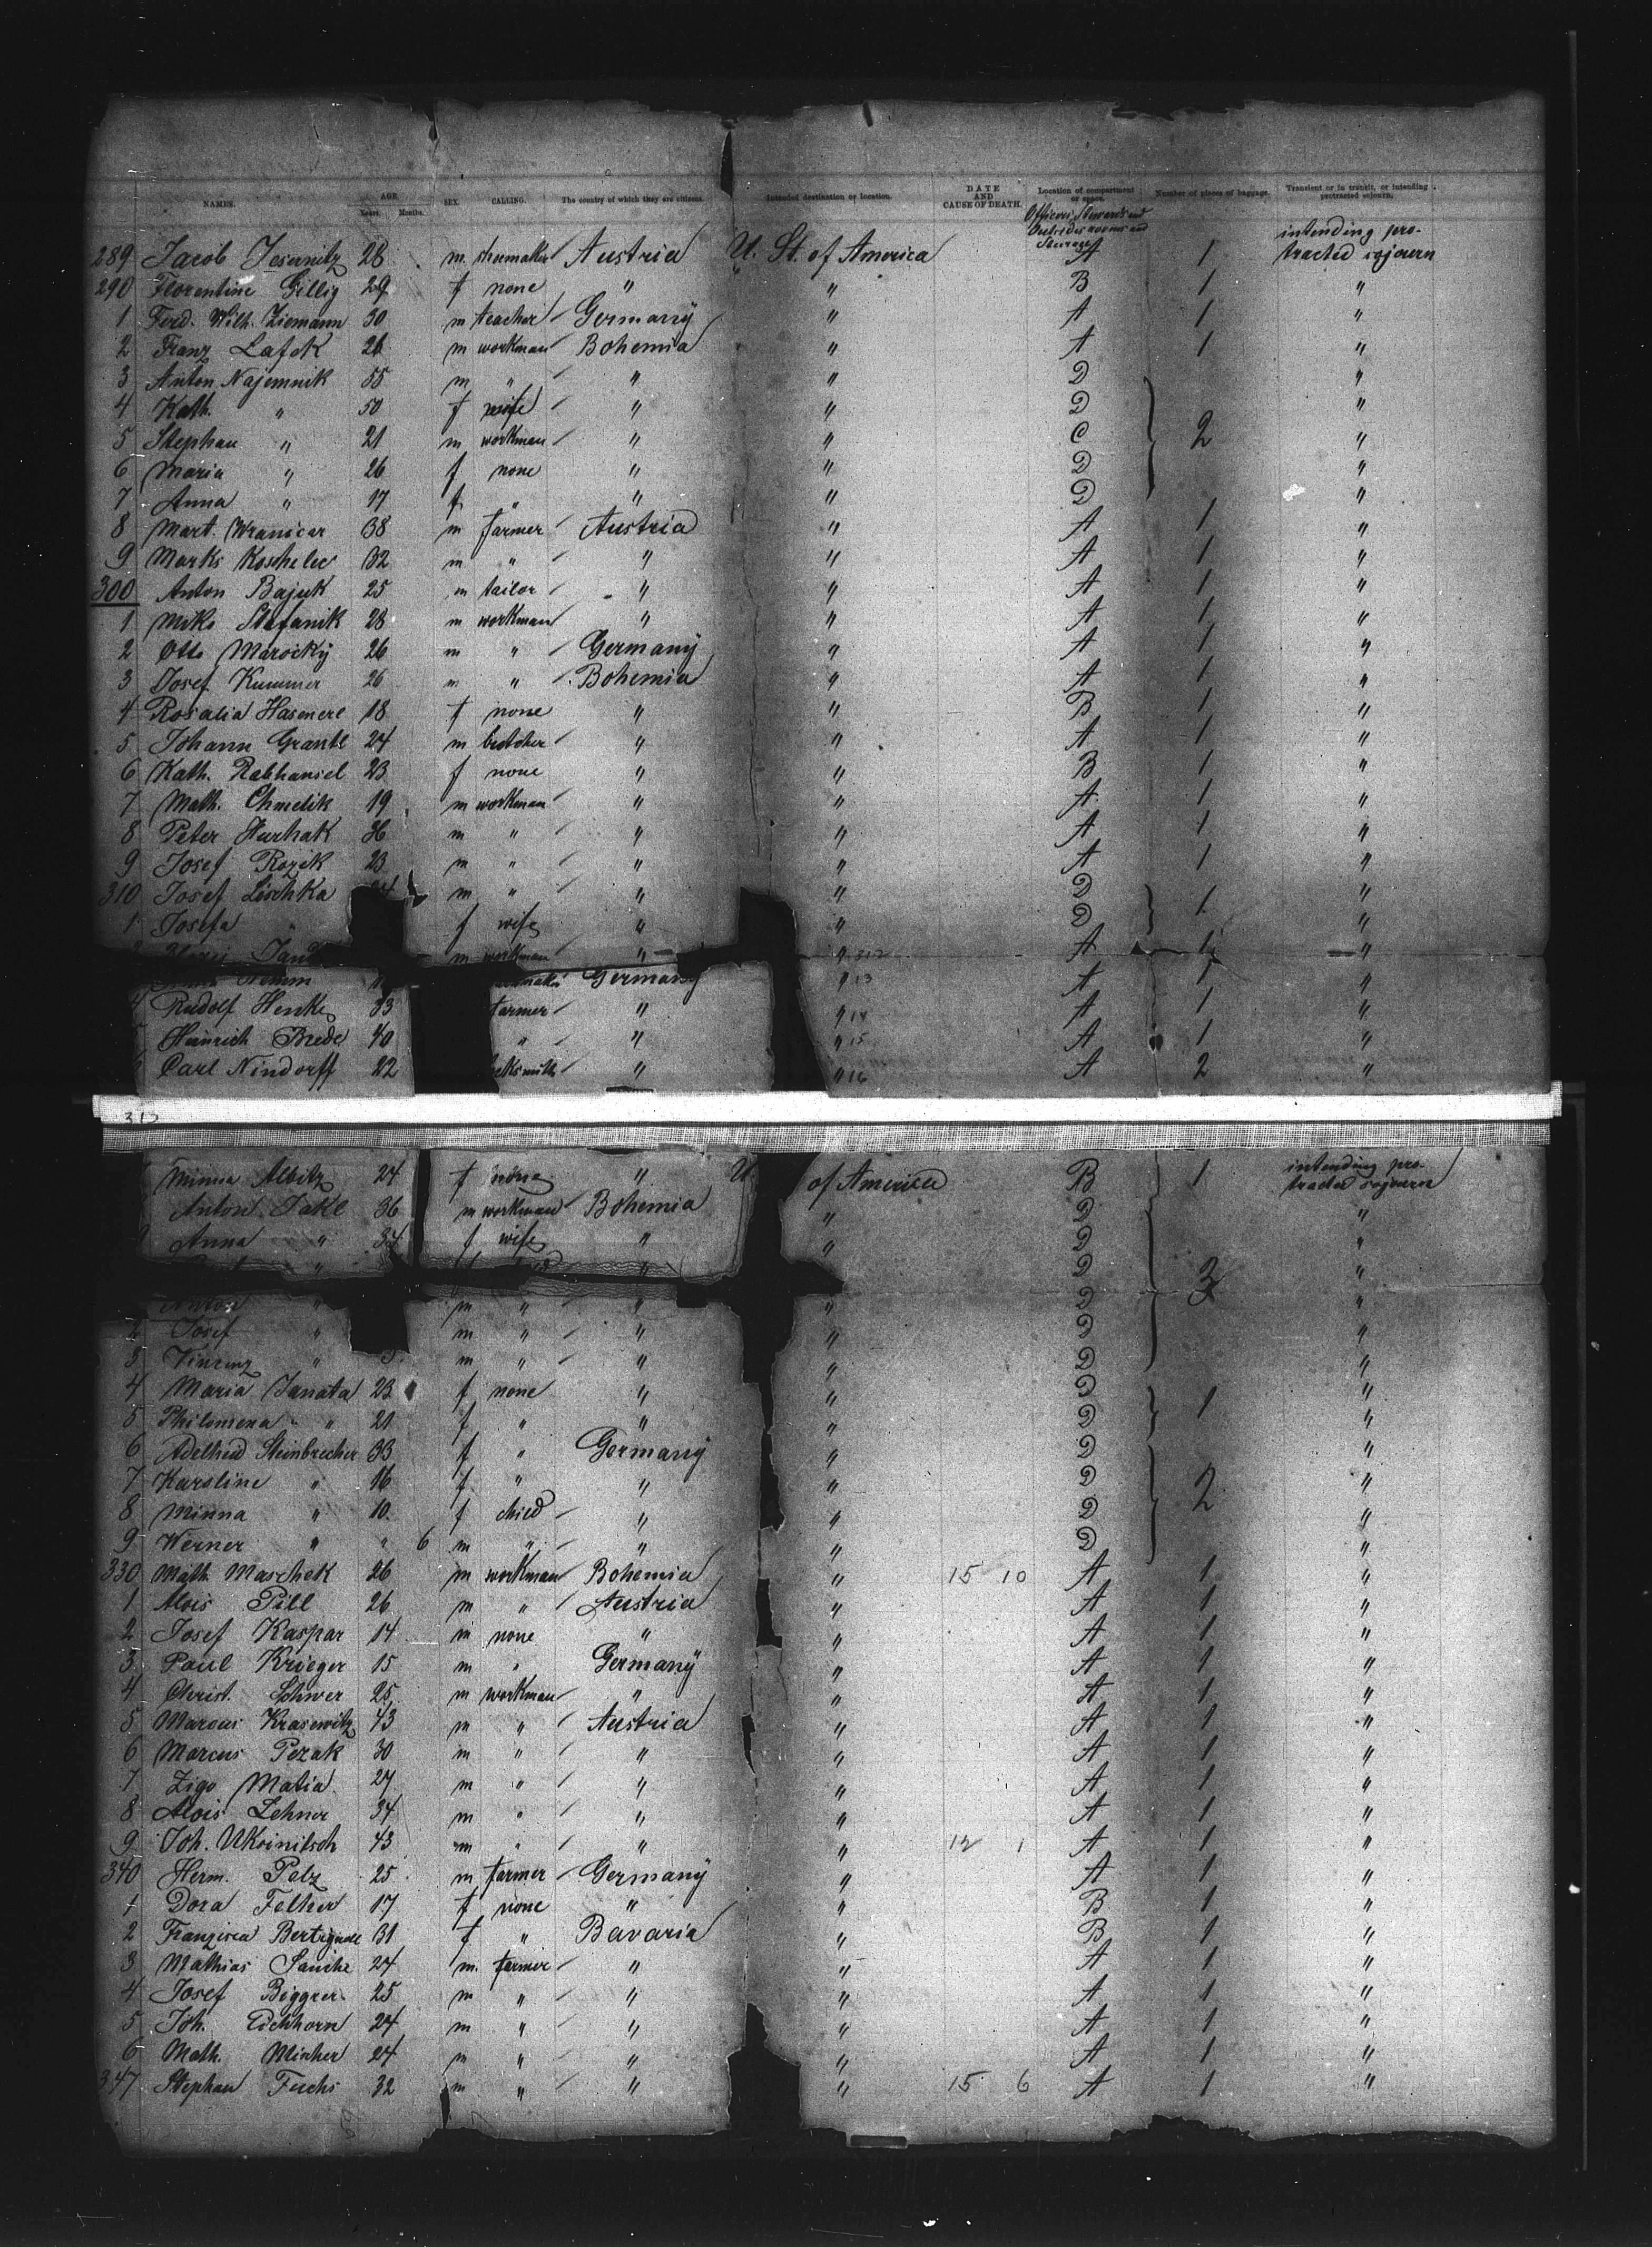 NAMES. AGE Years. Months. SEX. CALLING. The country of which they are citizens. Intended destination or location. DATE AND CAUSE OF DEATH. Location of compartment or space. Number of pieces of baggage. Transient or in transit, or intending protracted sojourn.
Officers, Stewards and
Steerage intending pro-
289 Jacob 28 m. shoemaker Austria U. St. of America A 1 tracted sojourn
290 Florentine Gillig 29 f none " " B 1 "
1 Ferd. Wilh. Ziemann 30 m teacher Germany " A 1 "
2 Franz Lafek 26 m workman Bohemia " A 1 "
3 Anton Najemnik 55 m " " " D "
4 Kath. " 50 f wife " " D "
5 Stephan " 21 m workman " " C 2 "
6 Maria " 26 f none " " D "
7 Anna " 17 f " " " D "
8 Mart. Wranicar 38 m farmer Austria " A 1 "
9 Marks Koschelec 32 m " " " A 1 "
300 Anton Bajuk 25 m tailor " " A 1 "
1 Miko Stefanik 28 m workman " " A 1 "
2 Otto Marocky 26 m " Germany " A 1 "
3 Josef Kummer 26 m " Bohemia " A 1 "
4 Rosalia Hasenerl 18 f none " " B 1 "
5 Johann Grantl 24 m butcher " " A 1 "
6 Kath. Rabhansel 23 f none " " B 1 "
7 Math. Chmelik 19 m workman " " A 1 "
8 Peter Hurhak 36 m " " " A 1 "
9 Josef Rozik 23 m " " " A 1 "
310 Josef Lischka 24 m " " " D 1 "
1 Josefa f wife " " D "
m workman " " 312 A 1 "
Germany " 13 A 1 "
4 Rudolf Henke 33 farmer " " 14 A 1 "
5 Heinrich Brede 40 " " " 15 A 1 "
Carl Nindorff 22 " " 16 A 2 "
intending pro-
Minna Albitz 24 f none " U of America B 1 tracted sojourn
Anton Jakl 36 m workman Bohemia " D "
9 Anna " 34 f wife " " D "
" " D 3 "
Anton " m " " " D "
2 Josef " m " " " D "
3 Vinzenz " m " " " D "
4 Maria Janata 23 f none " " D 1 "
5 Philomena " 21 f " " " D "
6 Adelheid Steinbrecher 33 f " Germany " D "
7 Karoline " 16 f " " " D 2 "
8 Minna " 10 f child " " D "
9 Werner " " 6 m " " " D "
330 Math. Maschek 26 m workman Bohemia " 15 10 A 1 "
1 Alois Pill 26 m " Austria " A 1 "
2 Josef Kaspar 14 m none " " A 1 "
3 Paul Krieger 15 m " Germany " A 1 "
4 Christ. Schwer 25 m workman " " A 1 "
5 Marcus Krasewitz 43 m " Austria " A 1 "
6 Marcus Pezak 30 m " " " A 1 "
7 Zigo Matia 27 m " " " A 1 "
8 Alois Lehner 34 m " " " A 1 "
9 Joh. Ukrinitsch 43 m " " " 12 1 A 1 "
340 Herm. Pelz 25 m farmer Germany " A 1 "
1 Dora 17 f none " " B 1 "
2 Franzisca 31 f " Bavaria " B 1 "
3 Mathias 24 m. farmer " " A 1 "
4 Josef Biggrer 25 m " " " A 1 "
5 Joh. Eichhorn 24 m " " " A 1 "
6 Math. 24 m " " " A 1 "
347 Stephan Fuchs 32 m " " " 15 6 A 1 "